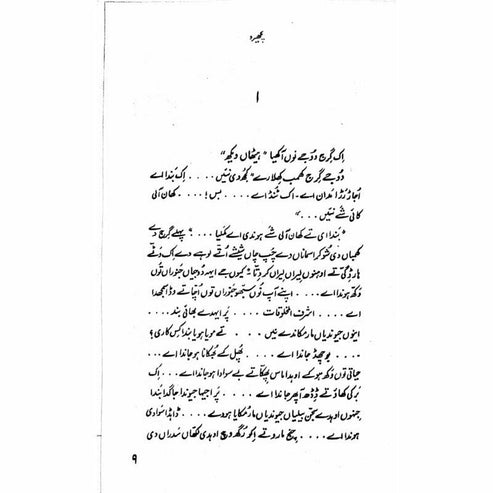 پکھیرو
۱
اِک گِرجھ دُوجے نوں آکھیا "ہیٹھاں ویکھ"
دُوجے گِرجھ کھمب کھلارے "کجھ وی نئیں.... اِک بندا اے
اُجاڑ رنڈا ندان اے۔ اک ٹنڈ اے.... بس!.... کھان آلی
کائی شے نئیں...."
"بندا ای تے کھان آلی شے ہوندی اے کملیا....؟ پہلے گِرجھ دے
کھمباں دی شُوکر اسماناں دے چُپ چاں شیشے اُتے لوہے دے اِک
مار گئی تے اوہنوں لیراں لیراں کر دتا" کیوں جے ایہہ دوجیاں جنوراں توں
وکھ ہوندا اے.... اپنے آپ نوں سبھو جنوراں توں اُچا تے وڈا سمجھدا
اے.... اشرف المخلوقات.... پَر ایہدے بھائی بند....
اینوں جیوندیاں مار مکاندے نیں.... تے مویا ہویا بندا کِس کاری؟
.... بو چھڈ جاندا اے.... پُھل کے بُھکانا ہو جاندا اے....
حیاتی توں وکھ ہو کے اوہدا ماس پھکا تے بے سوادا ہو جاندا اے.... اِک
بُرکی کھاؤ تے ڈِڈھ آپھر جاندا اے.... پَر اجیہا جیوندا جاگدا بندا
جہنوں اوہدے سجن بیلیاں جیوندیاں مار مکایا ہووے.... ڈاہڈا سوادی
ہوندا اے.... چُنج مارو تے اِکو رگ وچ اوہدی لکھاں سدراں دی
۹